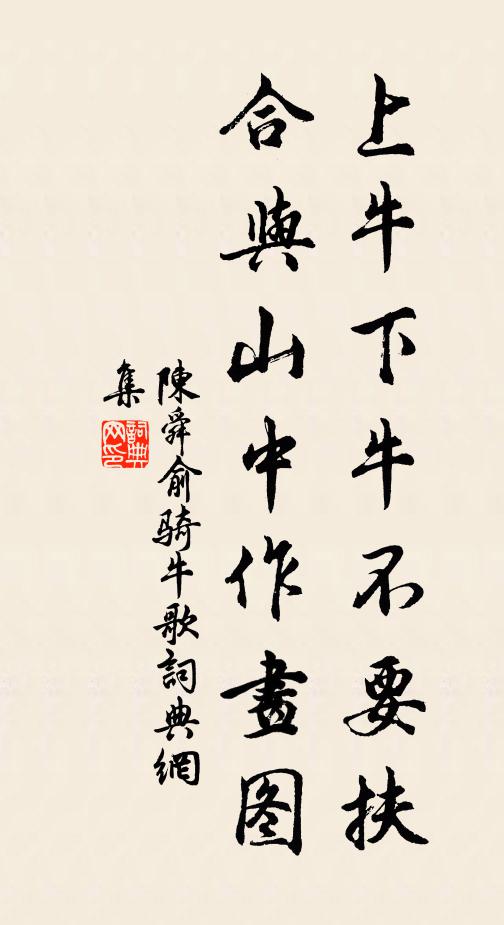 上牛下牛不要扶
合與山中作畫图
陳舜俞騎牛歌詞典網
集
詞典网印